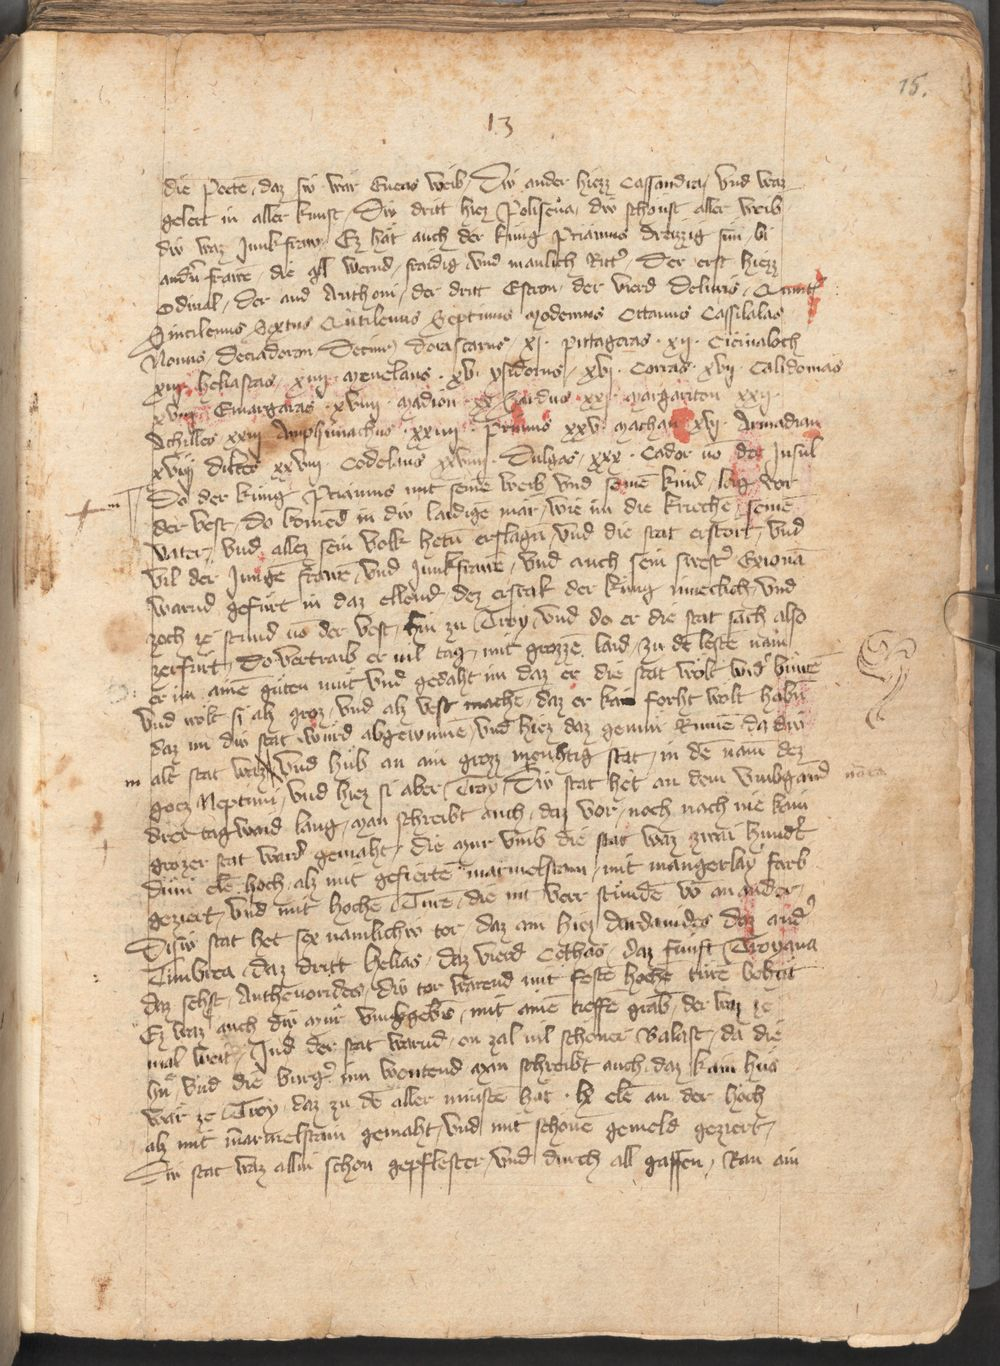 15.
13
die Poete, daz siv war Eneas weib, Div ander hiezz Cassandra, vnd waz
gelert in aller kunst, Div dritt hiez Polisena, div schonst aller weib
div waz Junkfraw, Ez hat auch der kung Priamus dreizzig sun, bi
andn frawe, die all wernd, staidig, vnd manlich Ritt, Der erst hiezz
Odinal, Der and Anthoni, der dritt Estron, der vierd Deliuis, Quint
Sincilenus Sextus Quintilenus Septimus Modemus Octauus Cassilalas
Nonus, Deciadoron Decimus Dorascarus xi. Pittagoras xij. Cicinaloch
xiij heliastas, xiiij Menelaus. xv. ysidorus, xvi. Corras xvij. Calidomas
xviij Emargaras xviiij. Madion. xx Zardus xxj. Margariton xxij
Achilles xxiij Amphimachus. xxiiij. Primus xxv. Mathan xvj. Armadian
xxvij dictes xxviij Codelaus xxviiij. Dulgas, xxx. Cador vo der Insul
Do der kung Priamus mit seine weib vnd seine kind, lag vor
der vest, Do komed in div laidige mar, wie im die krieche seine
vater, vnd allez sein volk hetn erslagn, vnd die stat erstort, vnd
vil der Junge frawe, vnd Junkfrawe, vnd auch sein swest Exiona
warnd gefurt in daz ellend, dez erschrak der kung innerclich, vnd
zoch ze stund vo der vest, hin zu Troy, vnd do er die stat sach also
zerfurt, Do vertraib er vil tag, mit grozze laid, zu de leste nam
er im aine guten mut vnd gedaht im daz er die stat wolt wid buwe
vnd wolt si alz groz, vnd alz vest mache, daz er kain forht wolt habn
daz im div stat wurd abgewunne, vnd hiez daz gemur Rume, da div
alt stat waz, vnd hub an ain grozz mehtig stat, in de nam dez
gocz Neptuni, vnd hiez si aber Troy, Div stat het an dem vmbgand
drier tagwaid lang, man schreibt auch, daz vor, noch nach nie kain
grozer stat ward gemaht, die mur vmb die stat waz zwai hundt
dumi ele hoch, alz mit gefierte marmelstain, mit mangerlay farb
geziert, vnd mit hoche Turne, die nit verr stunde vo an ander,
Disiv stat het sex namlichiv tor, daz ain hiez Dardanides daz and
Timbrea, daz dritt helias, daz vierd Cethas, daz funft Troyana
daz sehst, Anthenorides, div tor warend mit feste hohe turne behut
Ez waz auch div mur vmbgebn, mit aine tieffe grab, der waz ze
mal weit, In der stat warnd, on zal vil schoner Balast, da die
vnd die burg inn wontend man schreibt auch, daz kain hus
war ze Troy, daz zu de aller minste hat. lx ele an der hoch
alz mit marmelstain gemaht, vnd mit schone gemeld geziert,
Div stat waz allin schon gepflester, vnd durch all gassen, Ran ain